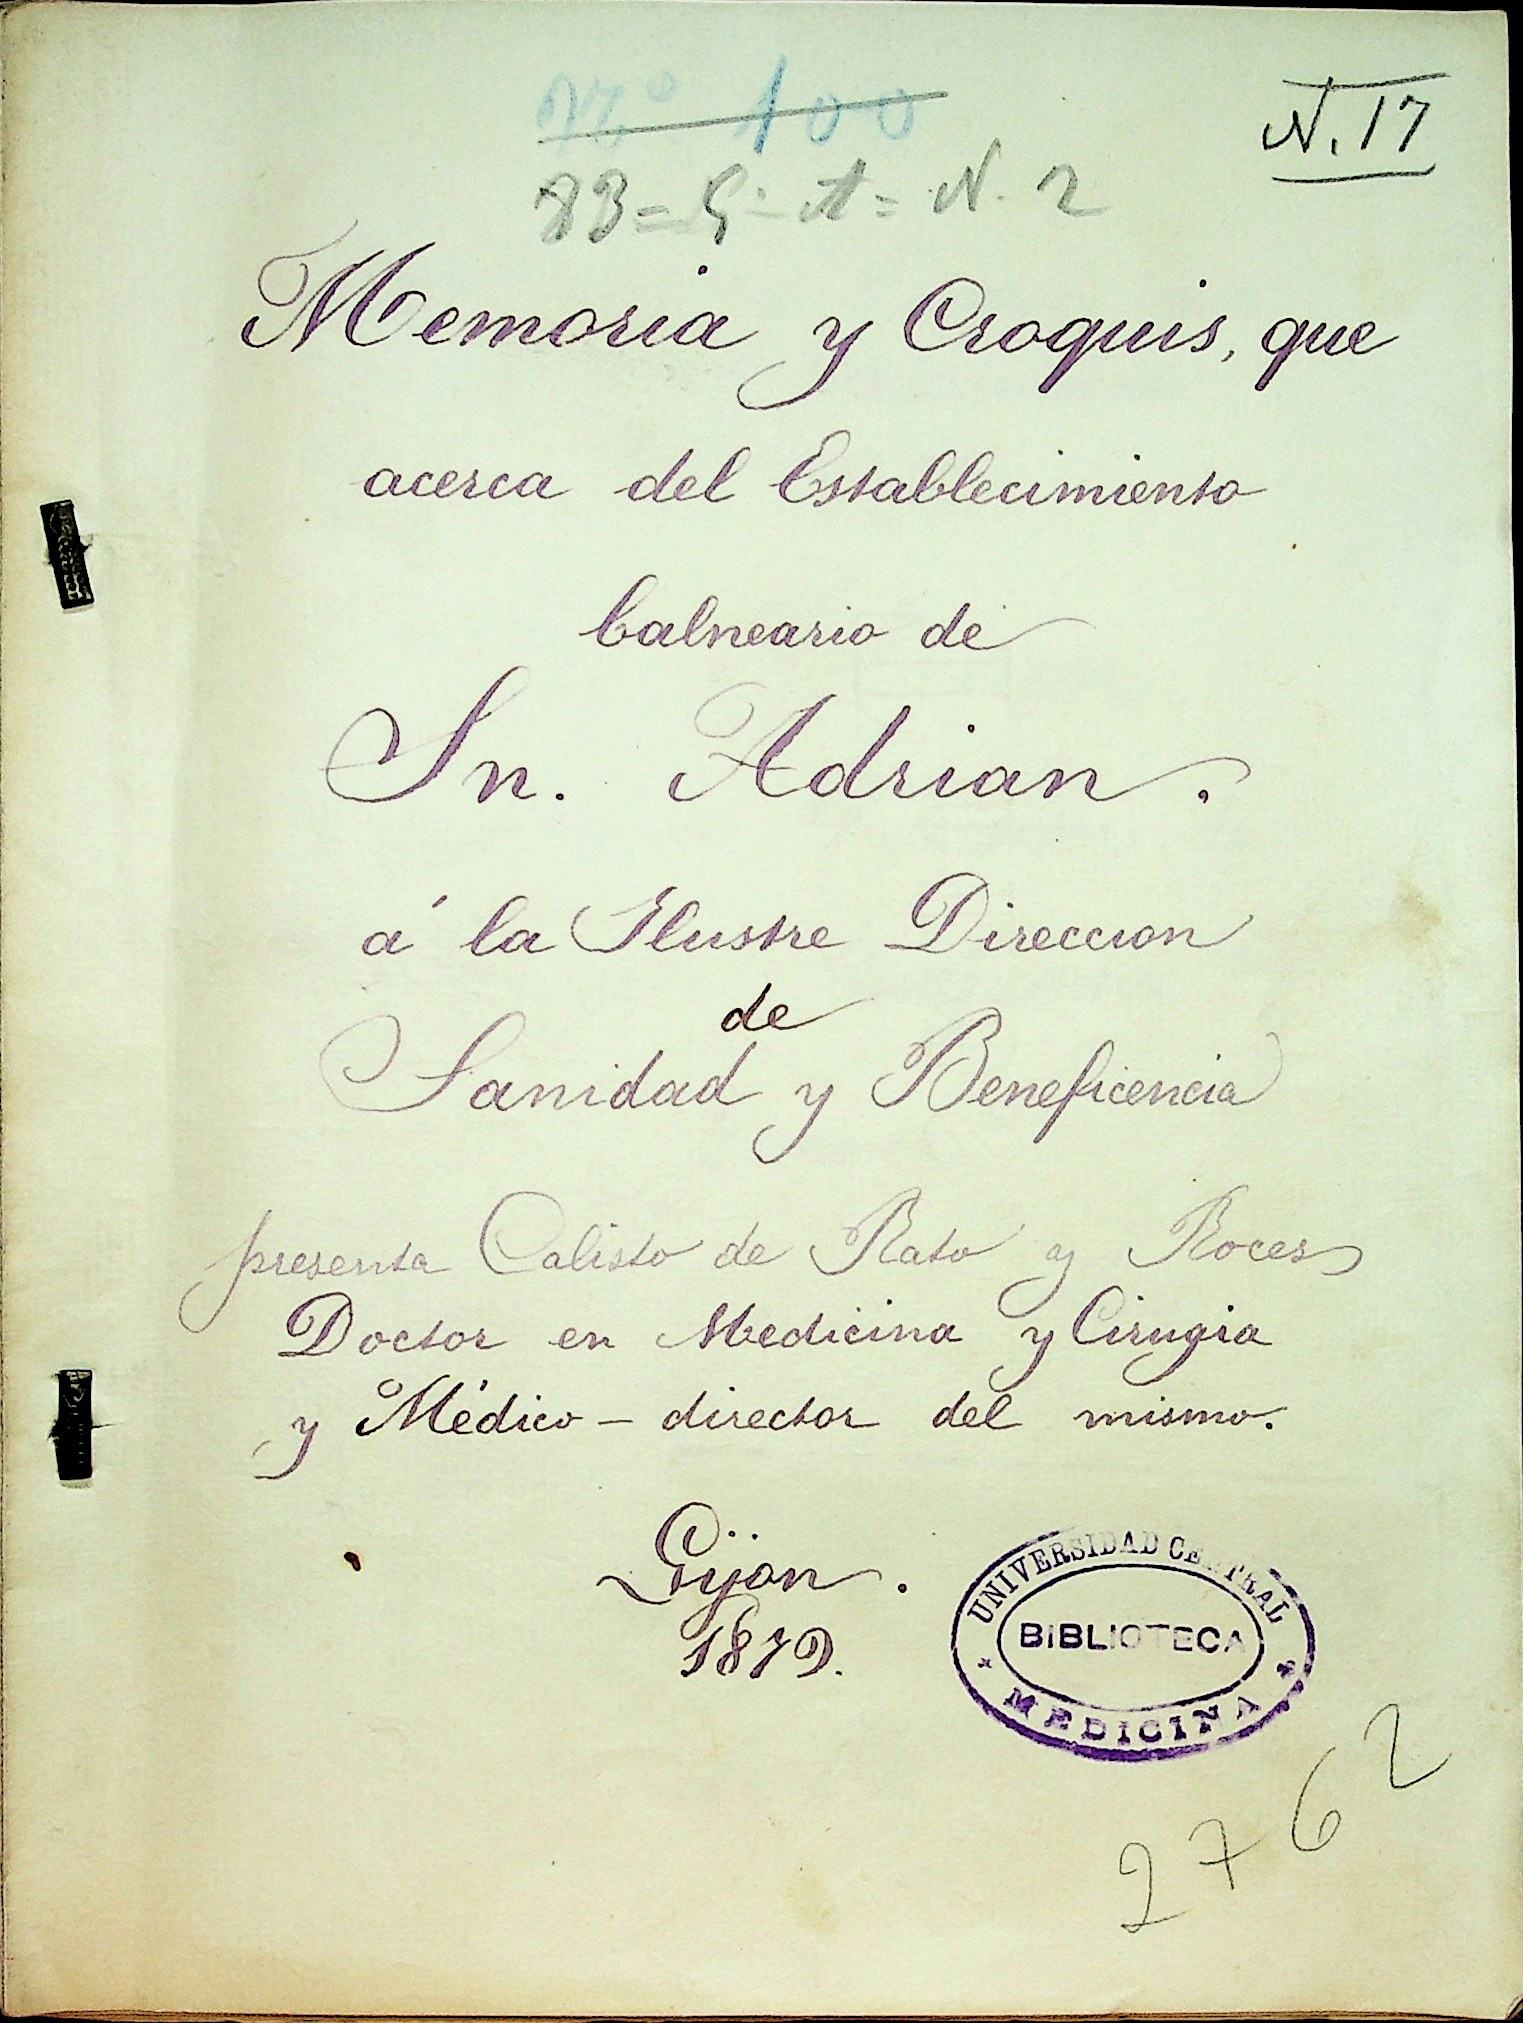 Nº 100
N. 17
83 = G = A = N. 2
Memoria y Croquis, que
acerca del Establecimiento
balneario de
Sn. Adrian.
á la Ilustre Direccion
de
Sanidad y Beneficencia
presenta Calisto de Rato y Roces
Doctor en Medicina y Cirugia
y Médico - director del mismo.
Gijon.
1879.
UNIVERSIDAD CENTRAL
BIBLIOTECA
MEDICINA
2762